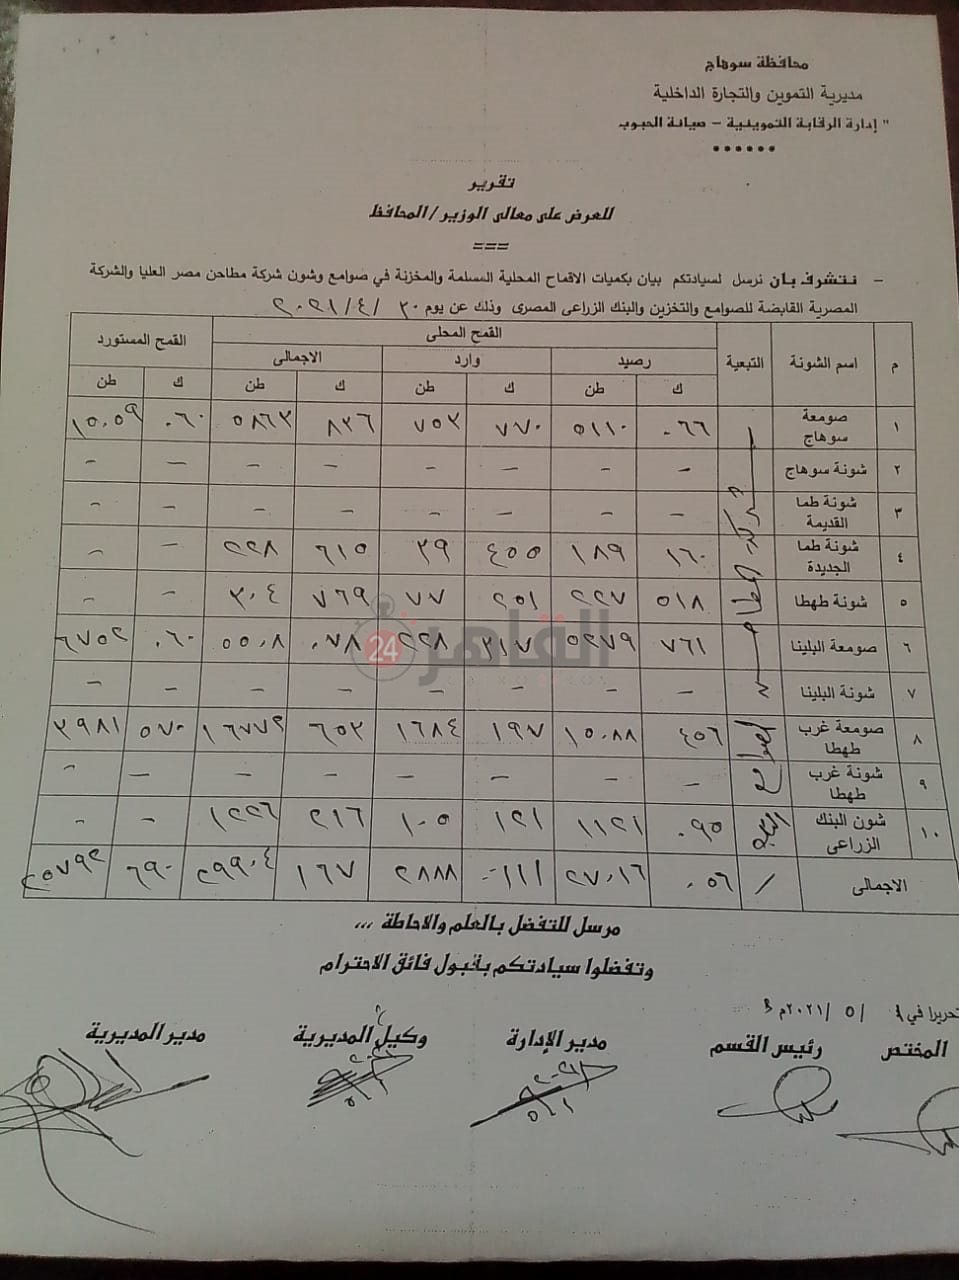 محافظة سوهاج
مديرية التموين والتجارة الداخلية
" إدارة الرقابة التموينية - صيانة الحبوب
••••••
تقرير
للعرض على معالى الوزير / المحافظ
===
- نتشرف بأن نرسل لسيادتكم بيان بكميات الاقماح المحلية المسلمة والمخزنة في صوامع وشون شركة مطاحن مصر العليا والشركة
المصرية القابضة للصوامع والتخزين والبنك الزراعى المصرى وذلك عن يوم ٣٠ /٤ /٢٠٢١
م اسم الشونة التبعية القمح المحلى القمح المستورد
رصيد وارد الاجمالى
ك طن ك طن ك طن ك طن
١ صومعة سوهاج ٠٦٦ ٥١١٠ ٧٧٠ ٧٥٣ ٨٣٦ ٥٨٦٣ ٠٦٠ ١٥٠٥٩
٢ شونة سوهاج - - - - - - - -
٣ شونة طما القديمة - - - - - - - -
٤ شونة طما الجديدة ١٦٠ ١٨٩ ٤٥٥ ٣٩ ٦١٥ ٢٢٨ - -
٥ شونة طهطا ٥١٨ ٢٢٧ ٢٥١ ٧٧ ٧٦٩ ٣٠٤ - -
٦ صومعة البلينا ٧٦١ ٥٢٧٩ ٣١٧ ٢٢٨ ٠٧٨ ٥٥٠٨ ٠٦٠ ٦٧٥٢
٧ شونة البلينا - - - - - - - -
٨ صومعة غرب طهطا ٤٥٦ ١٥٠٨٨ ١٩٧ ١٦٨٤ ٦٥٣ ١٦٧٧٢ ٥٧٠ ٣٩٨١
٩ شونة غرب طهطا - - - - - - - -
١٠ شون البنك الزراعى ٠٩٥ ١١٢١ ١٢١ ١٠٥ ٢١٦ ١٢٢٦ - -
الاجمالى / ٠٥٦ ٢٧٠١٦ ١١١ ٢٨٨٨ ١٦٧ ٢٩٩٠٤ ٦٩٠ ٢٥٧٩٢
القاهرة 24
مرسل للتفضل بالعلم والاحاطة ,,,
وتفضلوا سيادتكم بقبول فائق الاحترام
تحريرا في ١ /٥ /٢٠٢١م
المختص رئيس القسم مدير الإدارة وكيل المديرية مدير المديرية